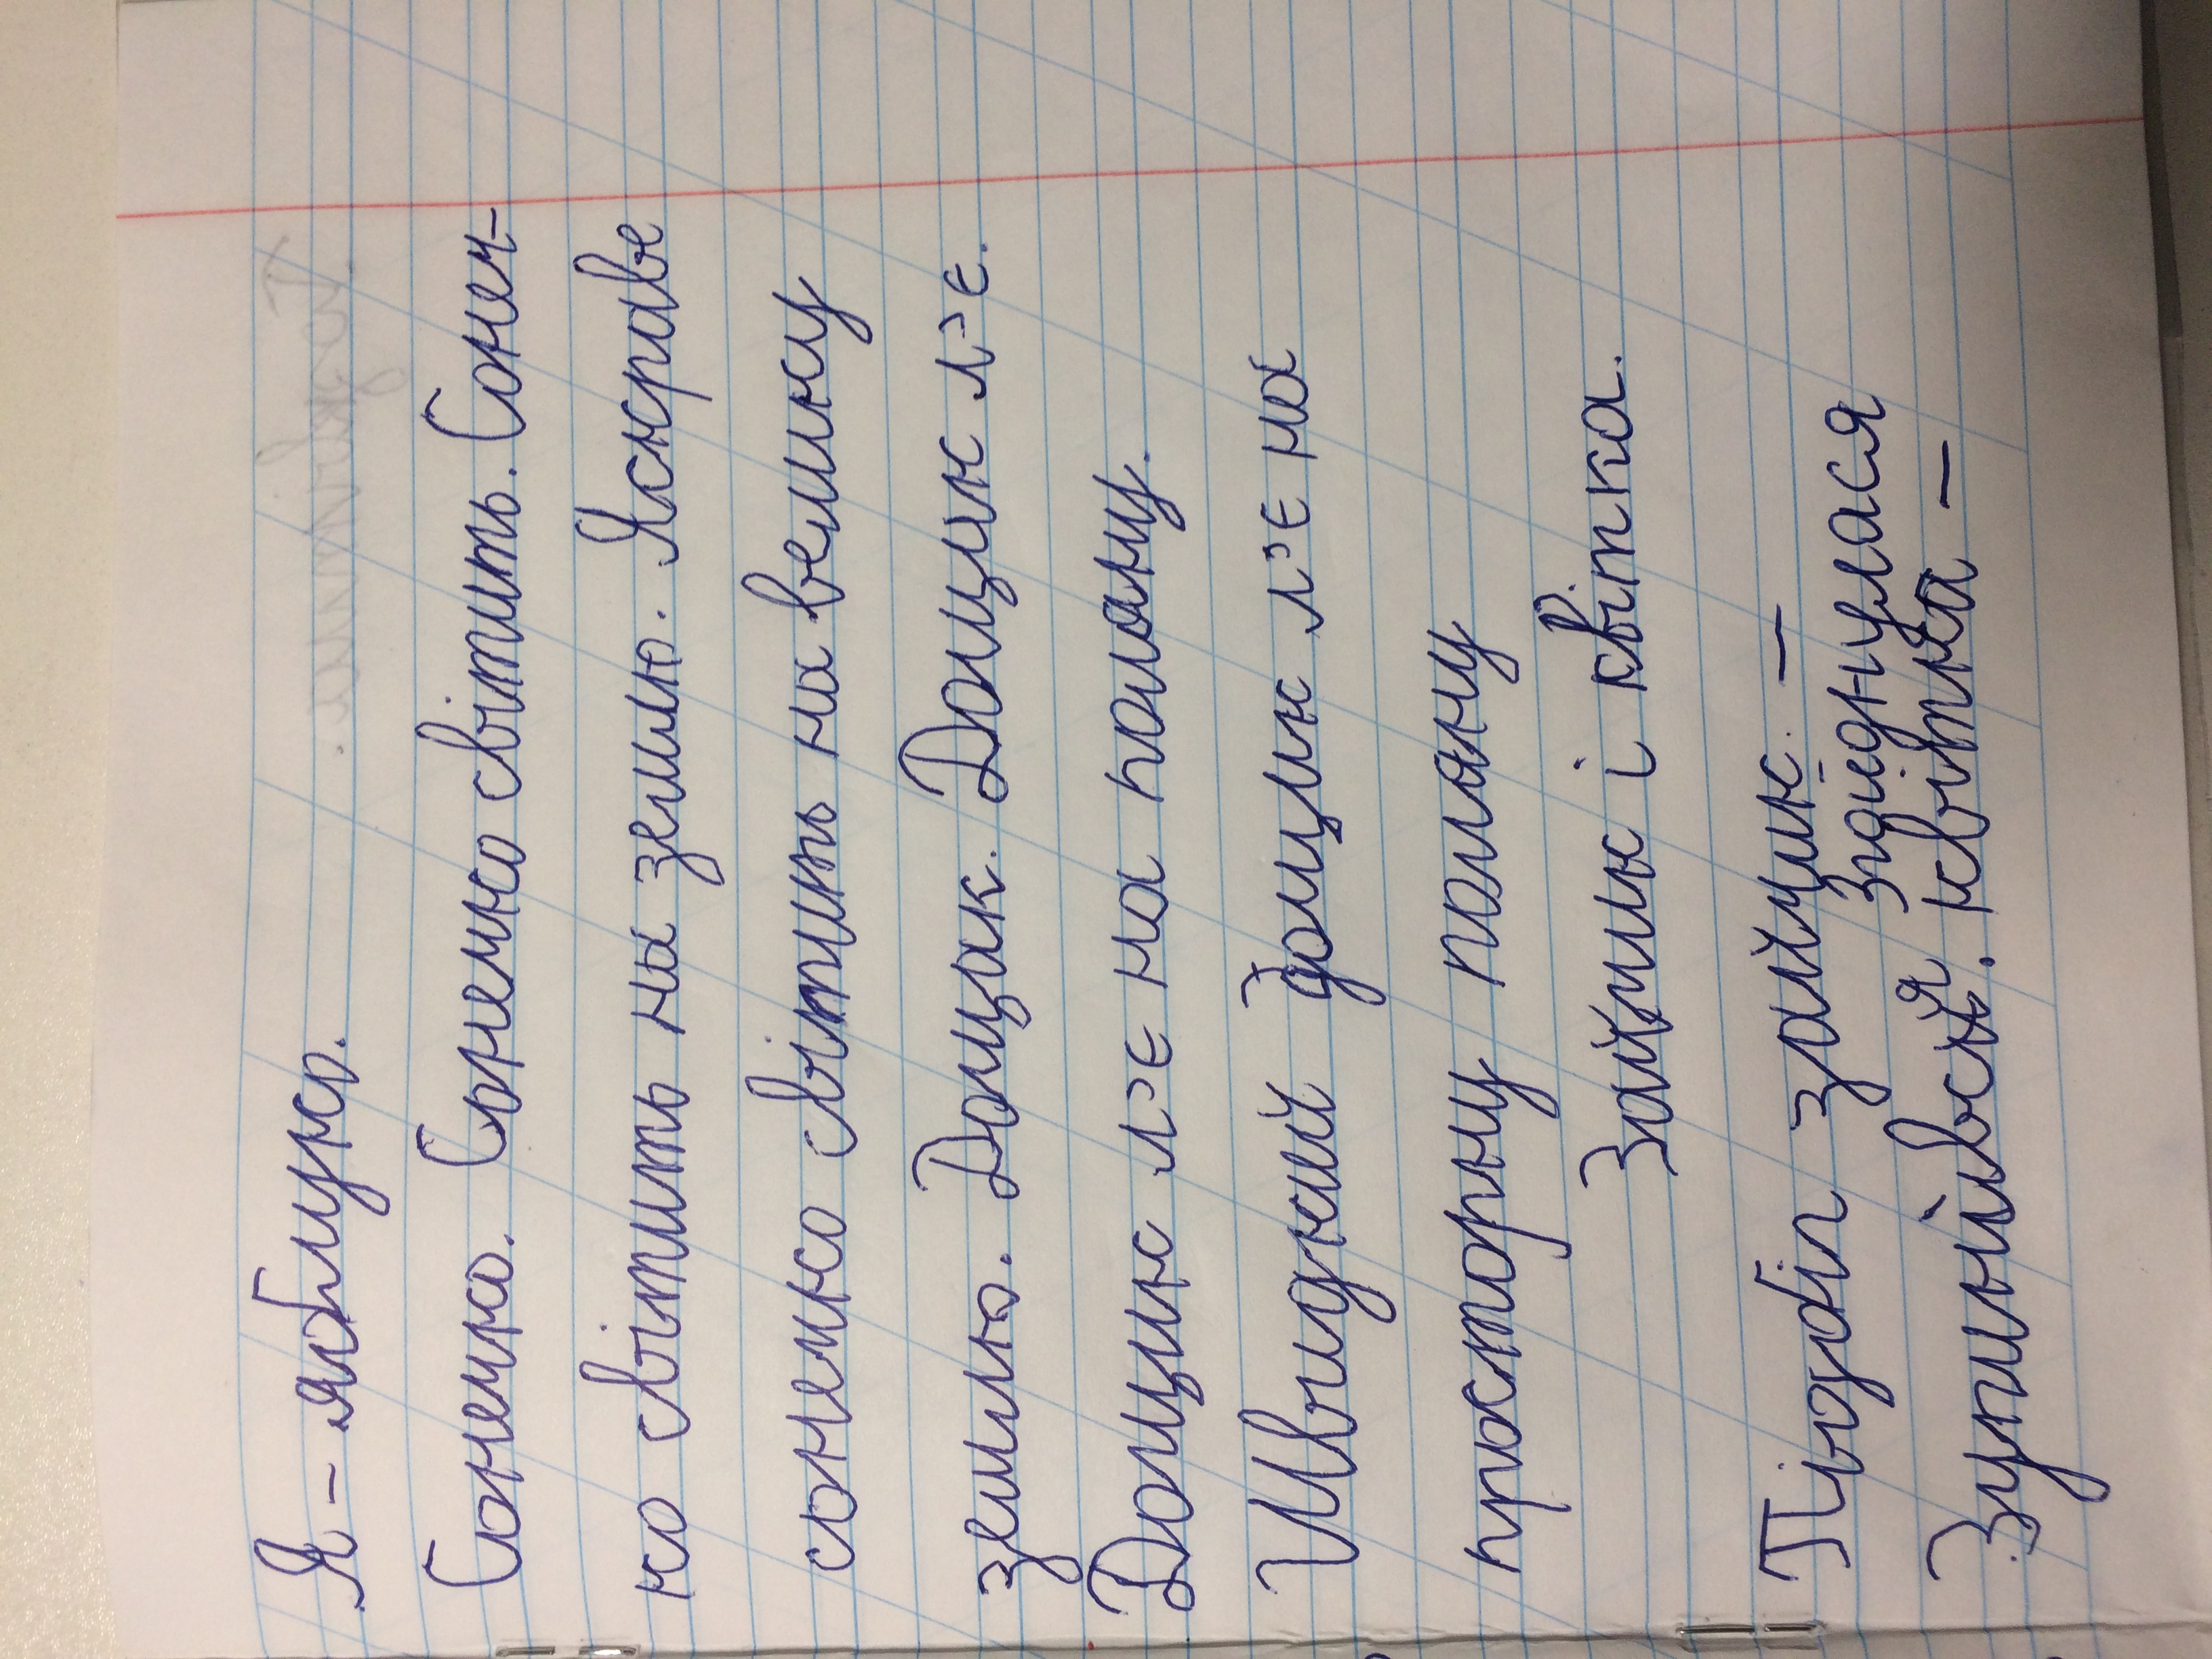 Я - яблуко.
Сонечко. Сонечко світить. Сонеч-
ко світить на землю. Яскраве
сонечко світить на велику
землю. Дощик. Дощик л'є.
Дощик л'є на поляну.
Швидкий дощик л'є на
простору поляну
Зайчик і квітка.
Підбіг зайчик. –
згойднулася
Зупинився. квітка –